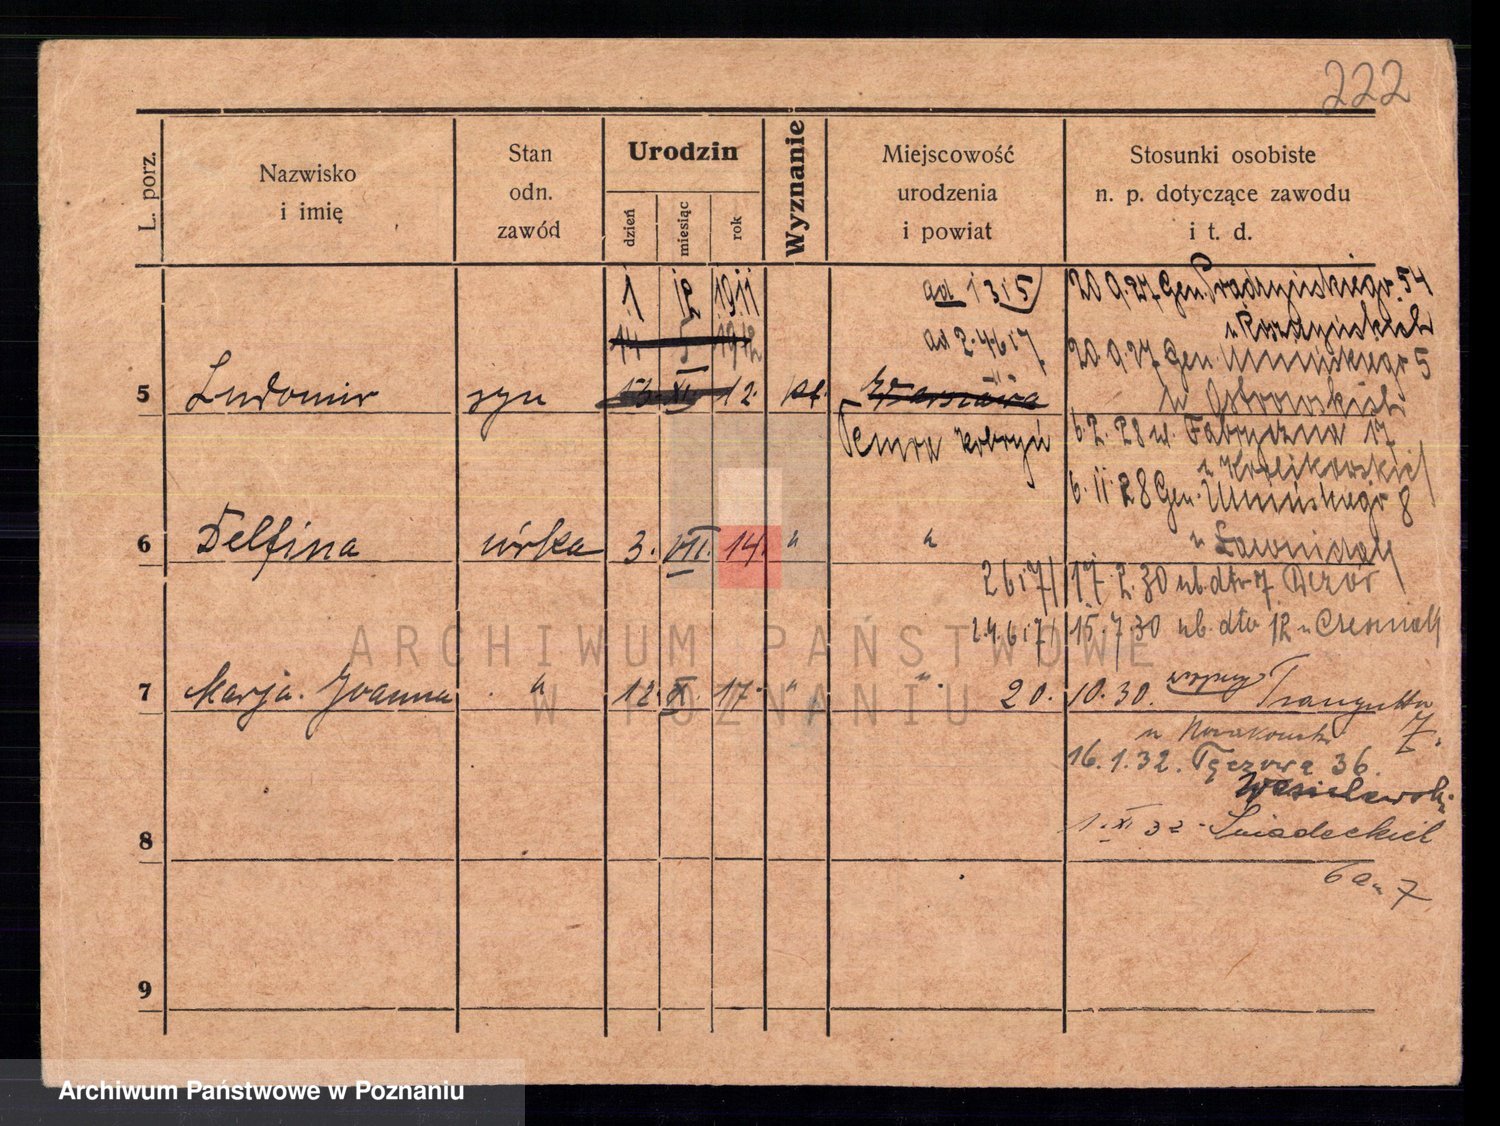 222
L. porz.
Nazwisko
i imię
Stan
odn.
zawód
Urodzin
dzień
miesiąc
rok
Wyznanie
Miejscowość
urodzenia
i powiat
Stosunki osobiste
n. p. dotyczące zawodu
i t. d.
1 12 1911
ad 1 3 i 5
20.9.27 Gen. Prądzyńskiego 54
14 1912
ad 2. 4 6 i 7
20.9.27 Gen Umińskiego 5
5 Ludomir syn 13. XI 12. kt. Warszawa
u Ostrowskich
Kobryń
6.2.28 ul. Fabryczna 17
u Królikowskich
6.11.28 Gen. Umińskiego 8
6 Delfina córka 3. VII. 14. " "
2 6 i 7/
17.2.30 ul. dto 7
2.4.6 i 7/
15.7.30 ul. dto 12 u
7 Marja. Joanna " 12. X. 17. " "
20. 10. 30. Traugutta
u Nowakowski 7.
16.1.32. Tęczowa 36.
Wesielewski
8
1. XI 32 Śniadeckich
6a 7
9
ARCHIWUM PAŃSTWOWE
W POZNANIU
Archiwum Państwowe w Poznaniu